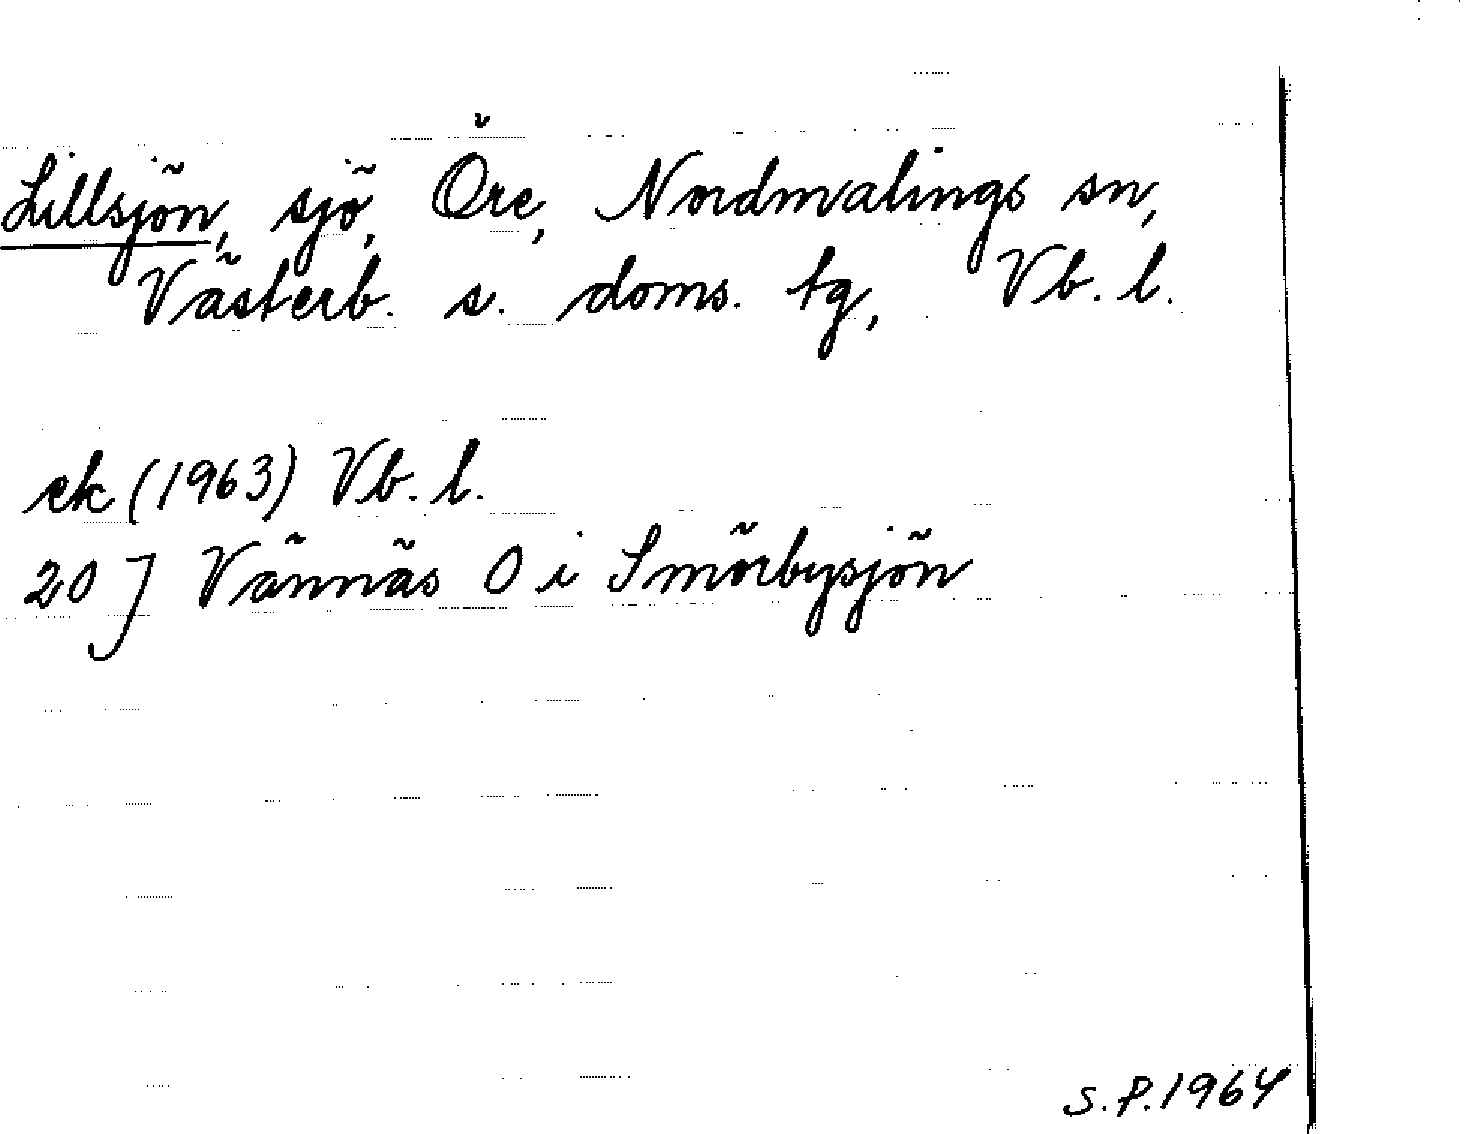 Lillsjön, sjö, Öre, Nordmalings sn,
Västerb. s. doms. tg, Vb. l.
ek (1963) Vb. l.
20 J Vännäs O i Smörbysjön
S.P. 1964